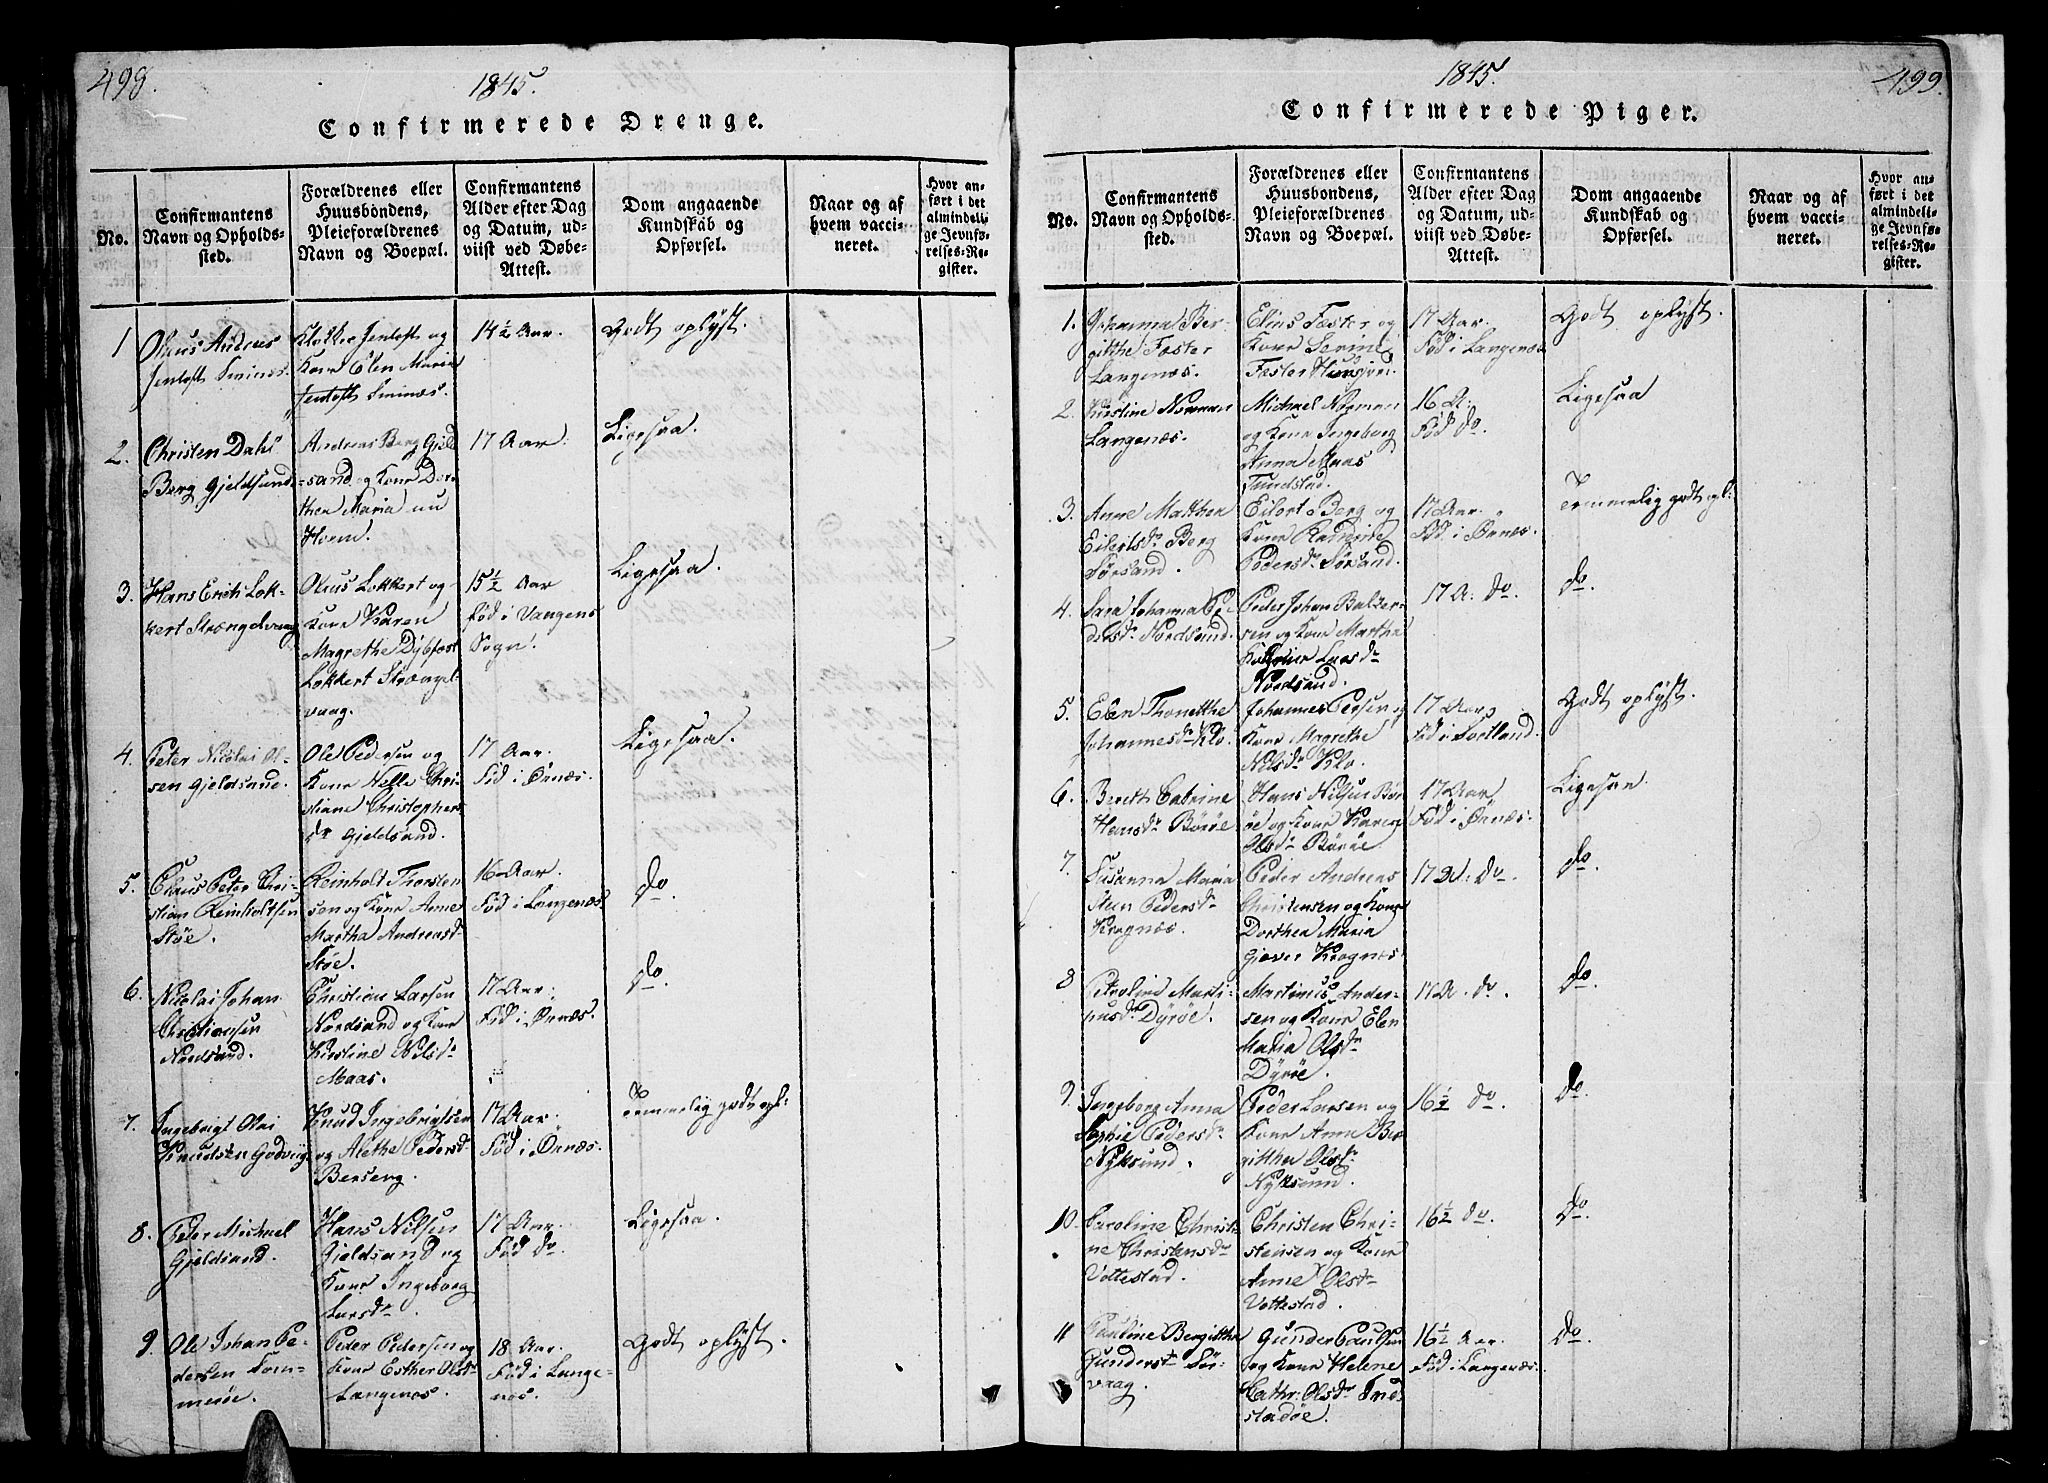 498.
1845.
Confirmerede Drenge.
No.
Confirmantens
Navn og Opholds-
sted.
Forældrenes eller
Huusbondens,
Pleieforældrenes
Navn og Boepæl.
Confirmantens
Alder efter Dag
og Datum, ud-
viist ved Døbe-
Attest.
Dom angaaende
Kundskab og
Opførsel.
Naar og af
hvem vacci-
neret.
Hvor an-
ført i det
almindeli-
ge Jevnfø-
relses-Re-
gister.
1
Olaus Andreas
Jentoft Sminæs.
Klokker Jentoft og
Kone Elen Maria
Jentoft Sminæs.
14 1/2 Aar.
Godt oplyst.
2.
Christen Dahl
Berg Gjeldsund.
Andreas Berg Gjeld
sand og Kone Dor-
thea Maria nu
Horm.
17 Aar.
Ligesaa.
3.
Hans Erich Lok-
kert Strængelvaag
Olaus Lokkert og
Kone Karen
Magrethe Dybfest
Lokkert Strængel-
vaag.
15 1/2 Aar
Fød i Vangens
Sogn.
Ligesaa.
4.
Peter Nicolai Ol-
sen Gjeldsund.
Ole Pedersen og
Kone Helle Chri-
stiane Christophers
dr Gjeldsand.
17 Aar.
Fød i Ørnæs.
Ligesaa.
5.
Claus Peter Chri-
stian Reinholtsen
Støe.
Reinholt Thorsten
sen og Kone Anne
Martha Andreasd
Støe.
16 Aar.
Fød i Langenæs
do.
6.
Nicolai Johan
Christiansen
Nordsand.
Christian Larsen
Nordsand og Kone
Kirstine Nelsdr
Maas.
17 Aar.
Fød i Ørnæs.
do.
7.
Ingebrigt Olai
Knudsen Godviig
Knud Ingebrigtsen
og Alethe Pedersd
Berseng.
17 Aar.
Fød i Ørnæs.
Temmelig godt opl:
8.
Peter Michael
Gjeldsand.
Hans Nilsen
Gjeldsand og
Kone Ingeborg
Larsdr.
17 Aar.
Fød do
Ligesaa.
9.
Ole Johan Pe-
dersen Tom-
merøe.
Peder Pedersen og
Kone Esther Olsd
Langenæs.
18 Aar.
Fød i Lange-
næs.
Godt oplyst.
1845.
499.
Confirmerede Piger.
No.
Confirmantens
Navn og Opholds-
sted.
Forældrenes eller
Huusbondens,
Pleieforældrenes
Navn og Boepæl.
Confirmantens
Alder efter Dag
og Datum, ud-
viist ved Døbe-
Attest.
Dom angaaende
Kundskab og
Opførsel.
Naar og af
hvem vacci-
neret.
Hvor an-
ført i det
almindeli-
ge Jevnfø-
relses-Re-
gister.
1.
Johanna Ber-
gitthe Fæster
Langenæs.
Elias Fæster og
Kone Serine
Fæster
17 Aar.
Fød i Langenæs
Godt oplyst.
2.
Kirstine Norman
Langenæs.
Michael Norman
og Kone Ingeborg
Anna Maas
Tunstad.
16 A:
Fød do.
Ligesaa
3.
Anne Matthea
Eilertsdr Berg
Sørsand.
Eilert Berg og
Kone
Pedersdr Sørsand.
17 Aar.
Fød i Ørnæs.
Temmelig godt opl:
4.
Sara Johanna Pe
dersdr Nordsand.
Peder Johan Balzer-
sen og Kone Martha
Larsdr
Nordsand.
17 A: do.
do.
5.
Elen Thonetthe
Johannesdr Klo.
Johannes Pedsen og
Kone Magrethe
Nelsdr Klo.
17 Aar
Fød i Fortland.
Godt oplyst.
6.
Bereth Catrine
Hansdr Børøe
Hans Nilsen Bør
øe og Kone Karen
Olsdr Børøe
17 Aar
Fød i Ørnæs.
Ligesaa.
7.
Susanna Maria
Steen Pedersdr
Kragnæs.
Peder Andreas
Christensen og Kone
Dorthea Maria
Giæver Kragnæs
17 A: do.
do.
8
Petroline Marti-
nusdr Dyrøe.
Martinus Ander-
sen og Kone Elen
Maria Olsdr
Dyrøe.
17 A. do.
do.
9.
Ingeborg Anna
Sophie Pedersdr
Nyksund.
Peder Larsen og
Kone Anne Ber
gitthe Olsdr
Nyksund.
16 1/2 do.
do.
10.
Caroline Christi-
ne Christensdr
Vottestad.
Christen Chri-
stensen og Kone
Anne Olsdr
Vottestad.
16 1/2 do.
do.
11
Pauline Bergitthe
Gundersdr Sør-
vaag.
Gunder Paulsen
og Kone Helene
Cathr: Olsdr Tne
stadøe.
16 1/2 Aar.
Fød i Langenæs.
do.